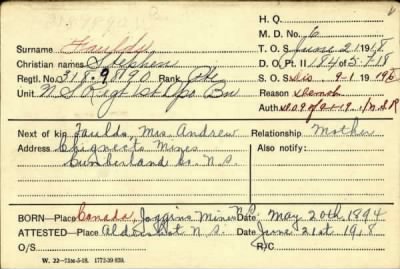 H. Q.
M. D. No. 6
Surname Faulds
T. O. S. June 21 1918
Christian names Stephen
D. O. Pt. II 184 of 5-7-18
Regtl. No. 3189890 Rank Pte
S. O. S. Dis. 9-1 1919
Unit N S Regt 1st Dpo Bn
Reason Demob
Auth
Next of kin Faulds, Mrs. Andrew Relationship Mother
Address Chignecto Mines Also notify:
Cumberland Co. N.S.
BORN—Place Canada, Joggins Mines N.S. Date May 20th 1894
ATTESTED—Place Aldershot N.S. Date June 21st 1918
O/S R/C
W. 22—75m-5-18. 1772-39 839.